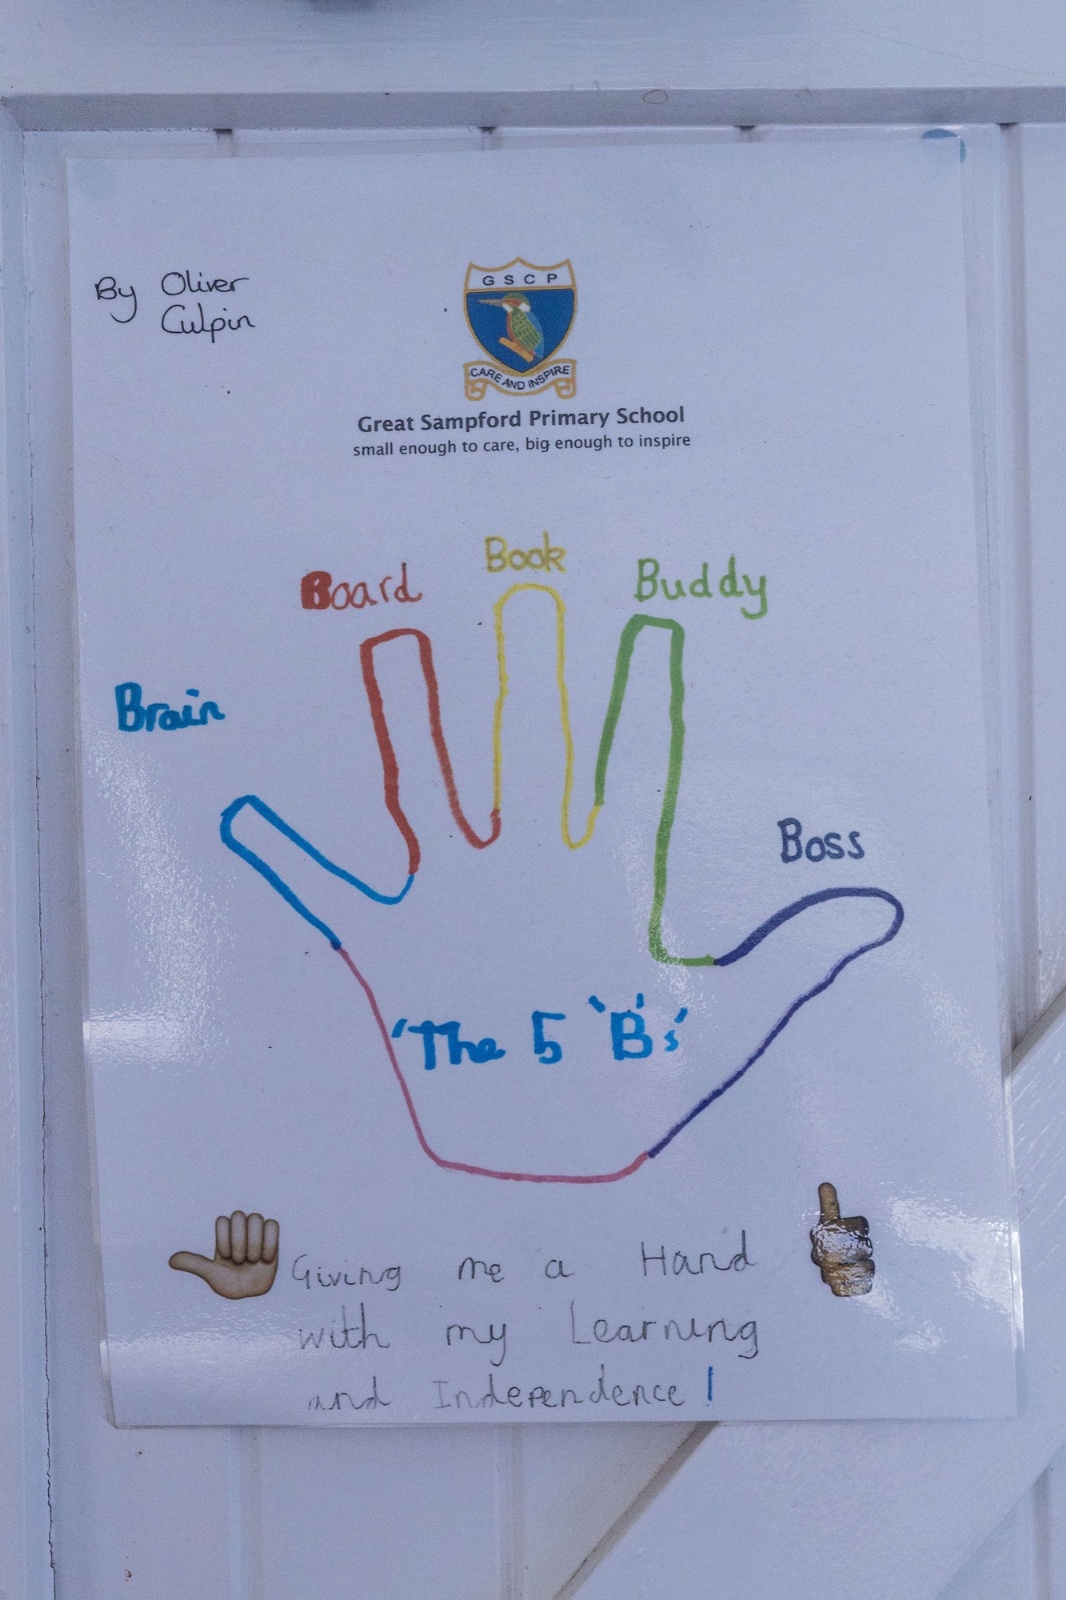 By Oliver
Culpin
GSCP
CARE AND INSPIRE
Great Sampford Primary School
small enough to care, big enough to inspire
Book
Board
Buddy
Brain
Boss
'The 5 'B's'
Giving me a Hand
with my Learning
and Independence!